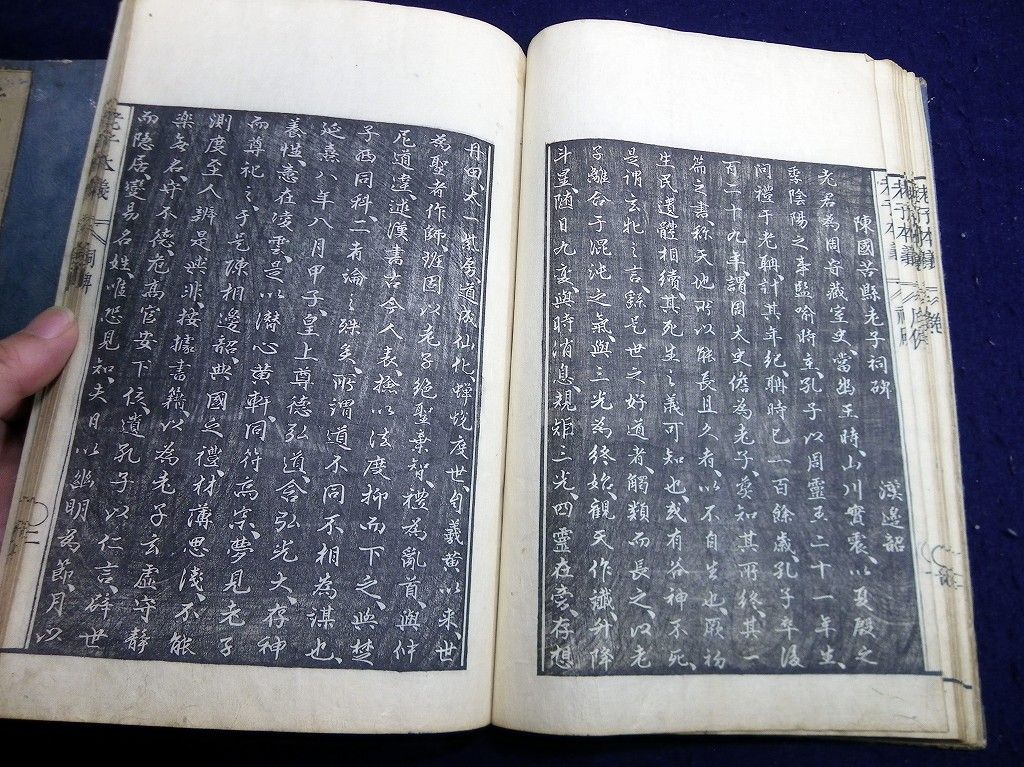 陳國苦縣老子祠碑
漢邊韶
老君為周守藏室史、當幽王時、山川實震、以夏殷之
季陰陽之事、監喻時主、孔子以周靈王二十一年生、
問禮于老聃、計其年紀、聃時已二百餘歲、孔子卒後
百二十九年、謂周太史儋為老子、莫知其所終、其一
篇之書、稱天地所以能長且久者、以不自生也、厥初
生民、遺體相續、其死生之義可知也、或有谷神不死、
是謂玄牝之言、繇是世之好道者、觸類而長之、以老
子離合于混沌之氣、與三光為終始、觀天作讖、升降
斗星、隨日九變、與時消息、規矩三光、四靈在旁、存想
丹田、太一紫房、道成仙化、蟬蛻度世、自羲黃以來、世
為聖者作師、班固以老子絕聖棄智、禮為亂首、與仲
尼道違、述漢書古今人表、檢以法度抑而下之、與楚
子西同科、二者論之殊矣、所謂道不同不相為謀也、
延熹八年八月甲子、皇上尊德弘道、含弘光大、存神
養性、意在凌雲、是以潛心黃軒、同符高宗、夢見老子
而尊祀之、于是陳相邊韶、典國之禮、材薄思淺、不能
測度至人、辨是與非、按據書籍、以為老子玄虛守靜
樂無名、守不德、危高官、安下位、遺孔子以仁言、辟世
而隱居、變易名姓、唯恐見知、夫日以幽明為節、月以
老子本義
祠碑
二